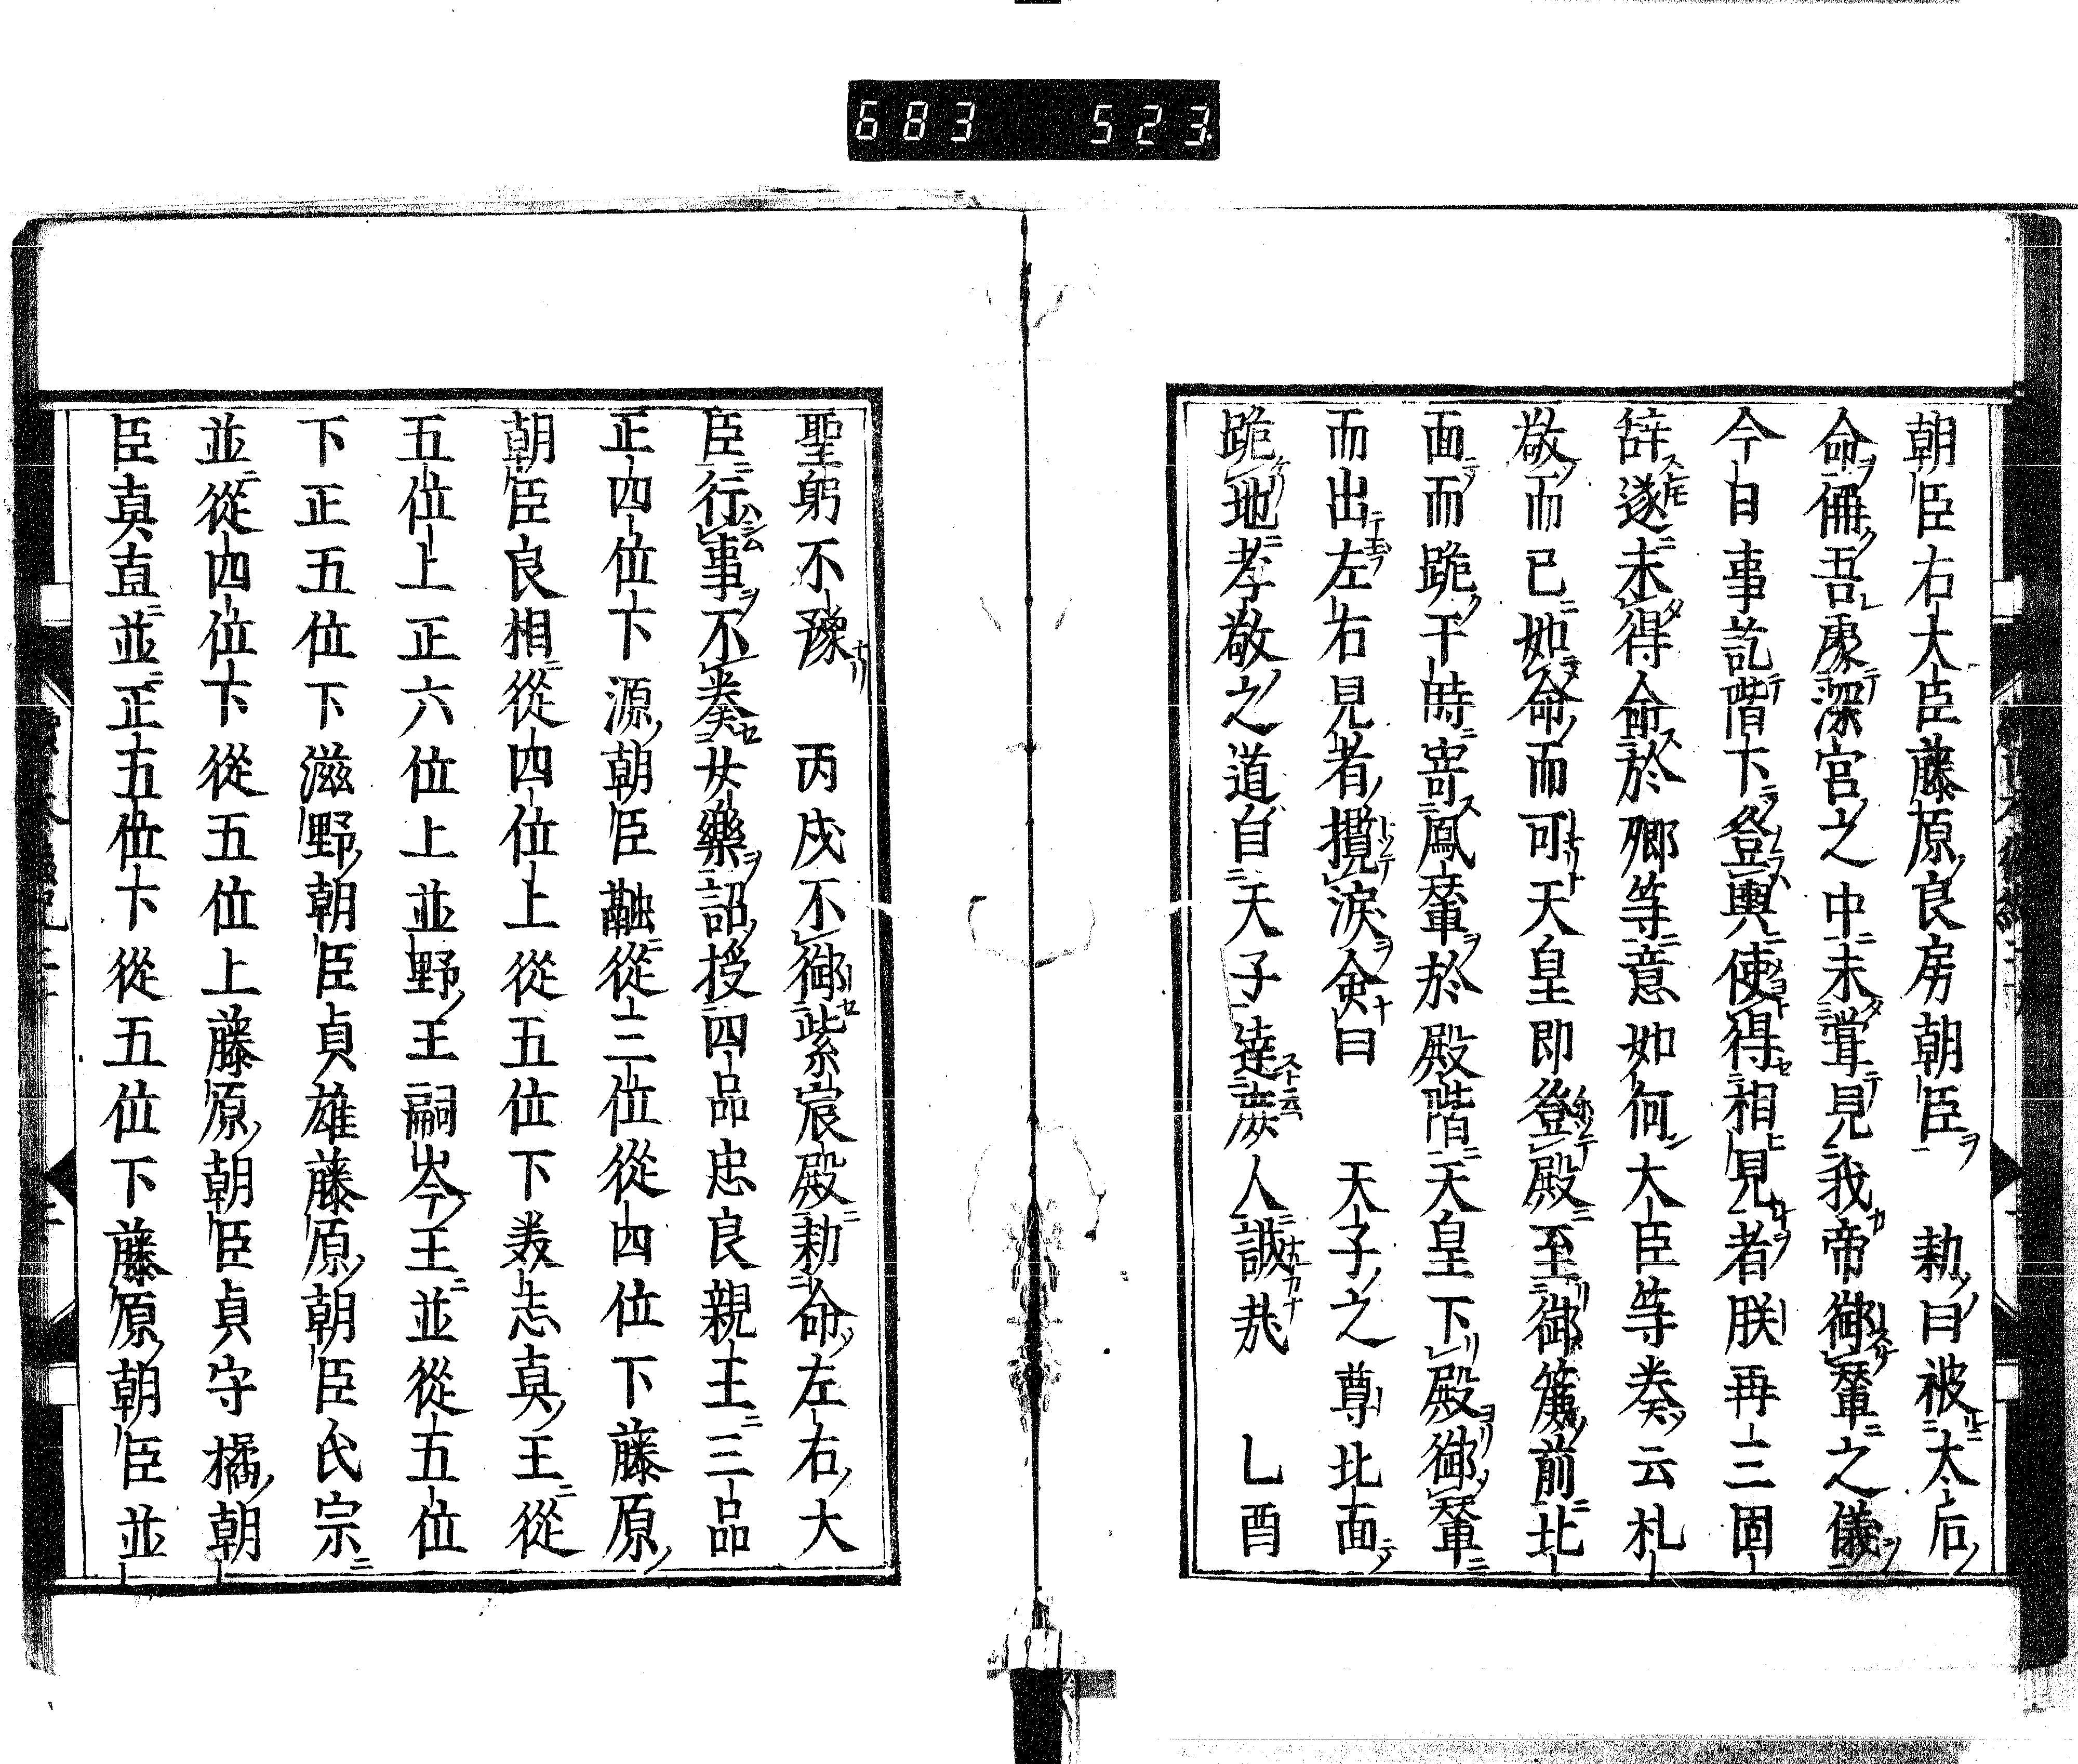 683 523
朝臣右大臣藤原良房朝臣 勅曰被太后
命偁吾處深宮之中未甞見我帝御輦之儀
今日事訖階下登輿使得相見者朕再三固
辞遂未得命於卿等意如何大臣等奏云礼
敬而已如命而可天皇即登殿至御簾前北
面而跪于時寄鳳輦於殿階天皇下殿御輦
而出左右見者攬涙僉曰 天子之尊北面
跪地孝敬之道自天子達庶人誠㢤 乚酉
聖躬不豫 丙戌不御紫宸殿勅命左右大
臣行事不奏女樂詔授四品忠良親王三品
正四位下源朝臣融從三位從四位下藤原
朝臣良相從四位上從五位下美志真王從
五位上正六位上並野王嗣岑王並從五位
下正五位下滋野朝臣貞雄藤原朝臣氏宗
並從四位下從五位上藤原朝臣貞守橘朝
臣真直並正五位下從五位下藤原朝臣並